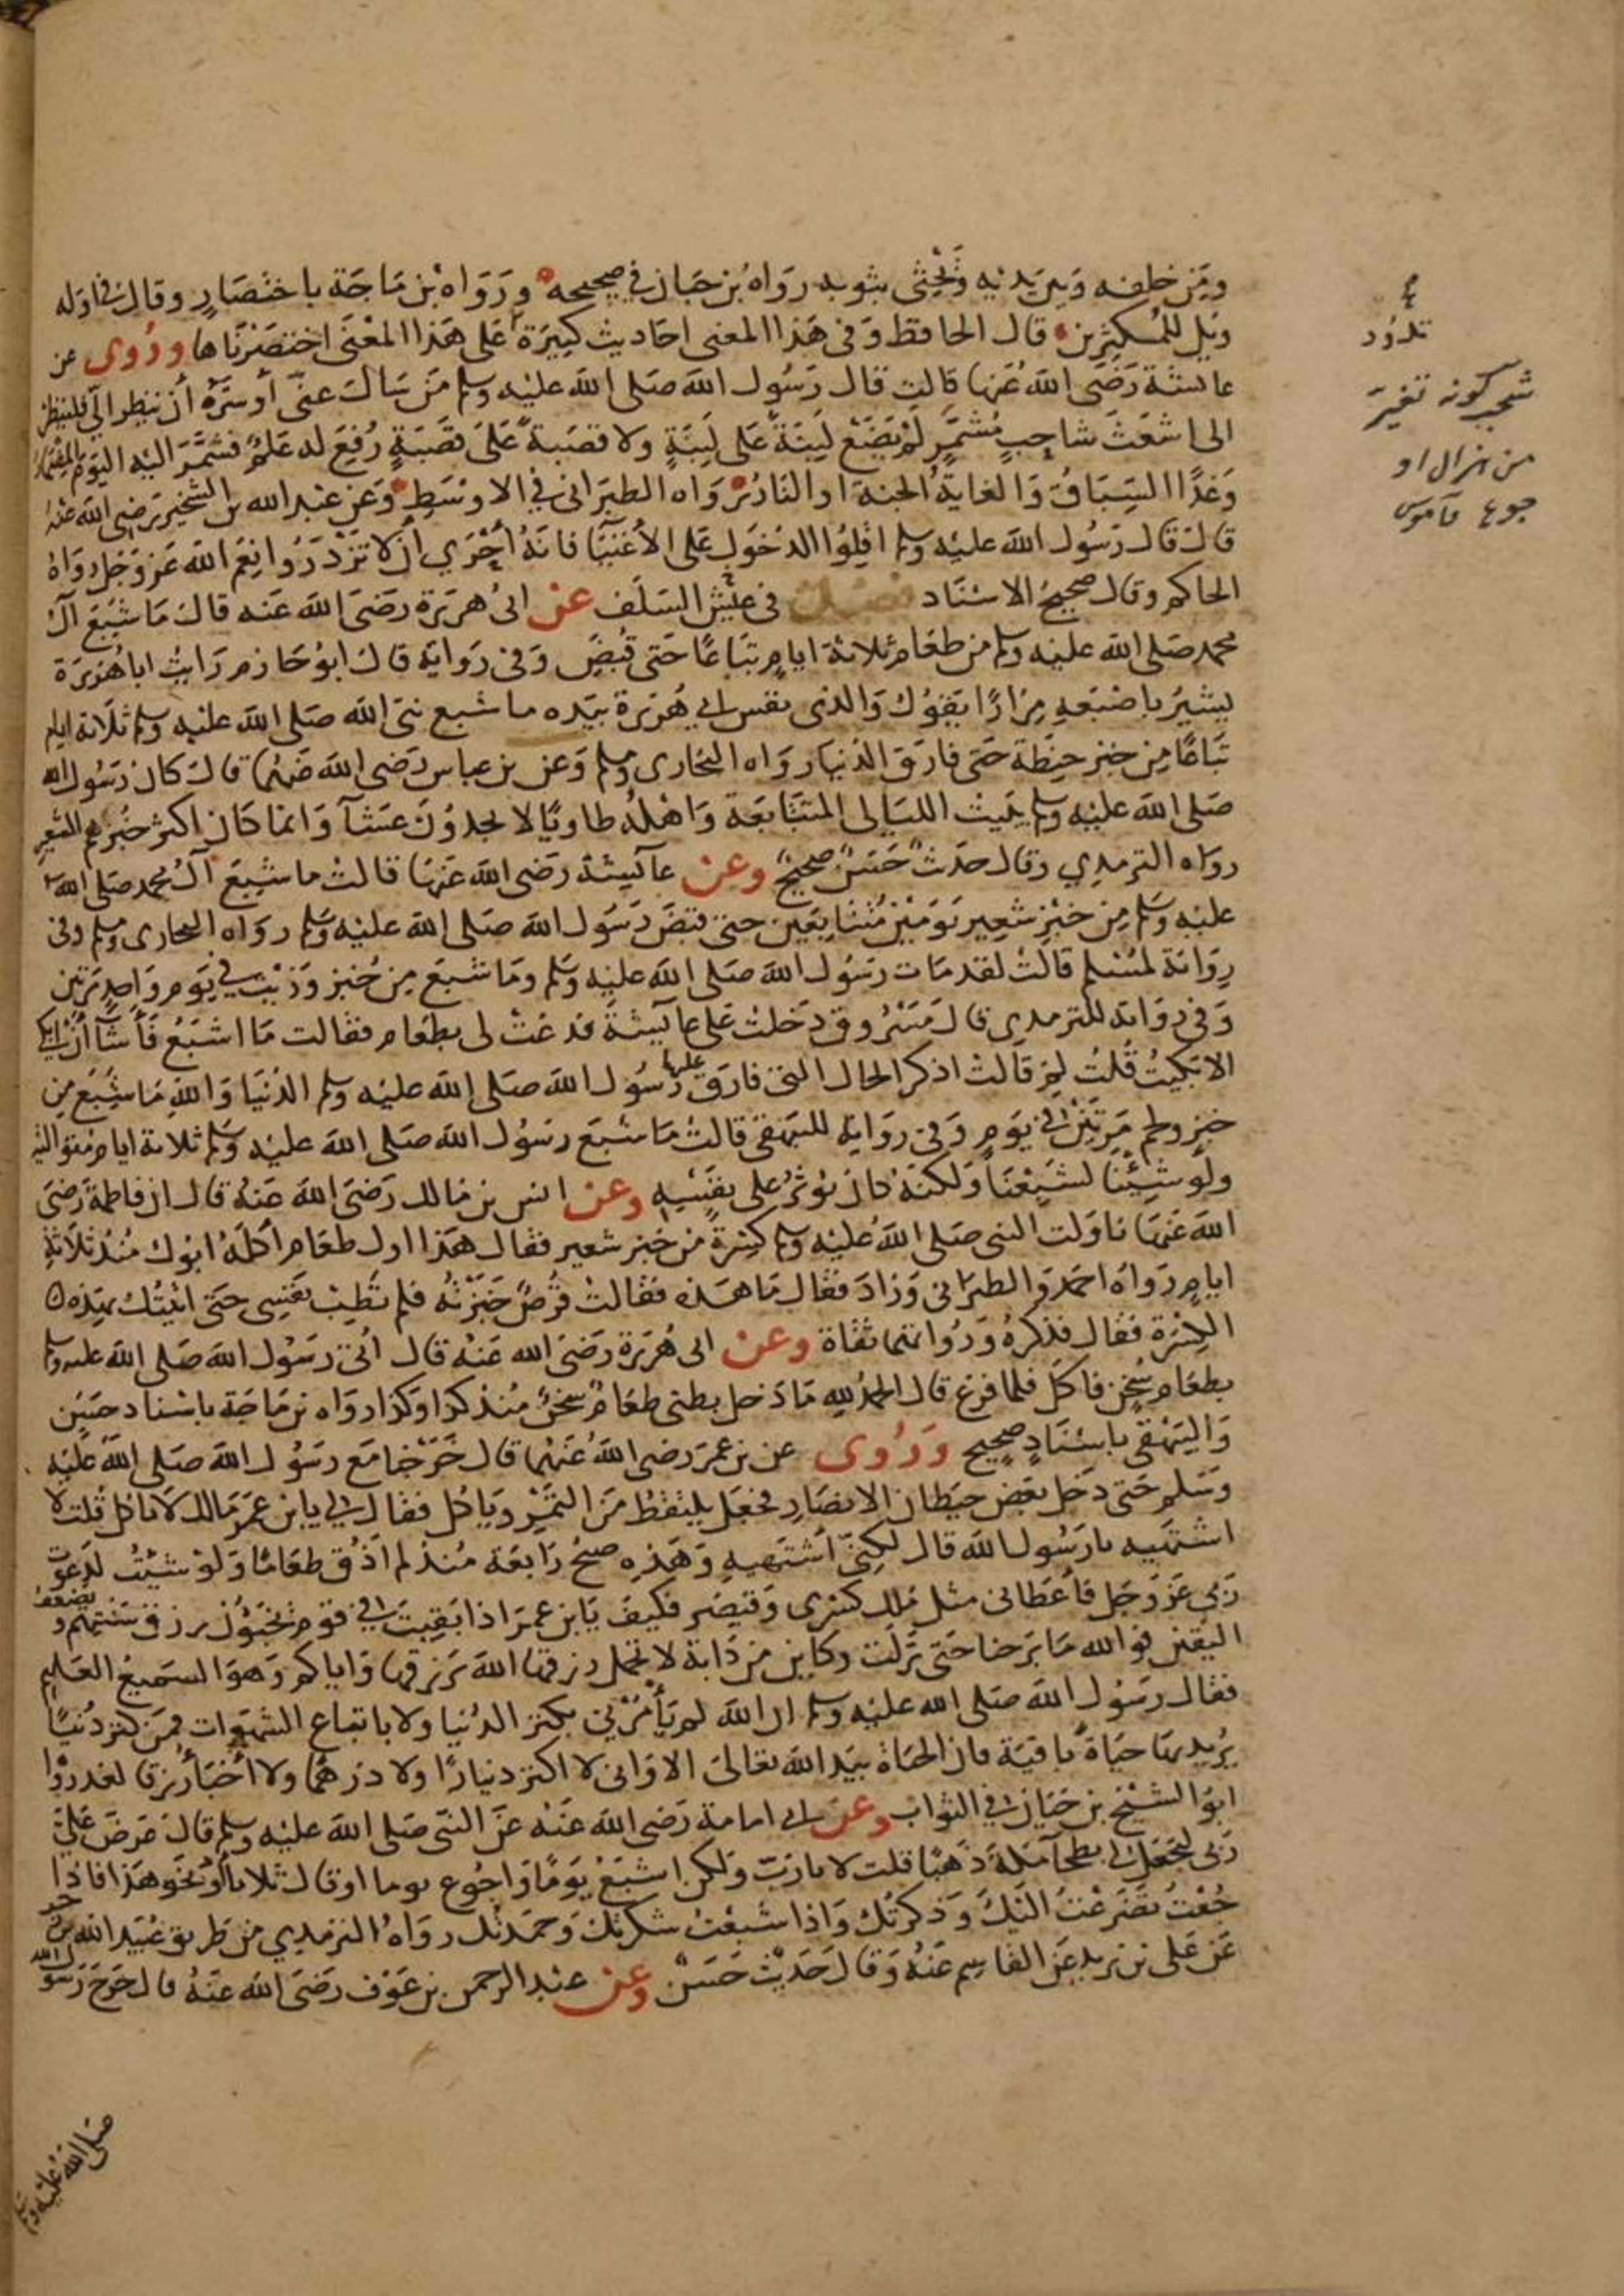 ومن خلفه وبين يديه ويحثى بثوبه رواه بن حبان في صحيحه ورواه بن ماجة باختصار وقال في اوله
ويل للمكثرين قال الحافظ وفى هذا المعنى احاديث كثيرة على هذا المعنى اختصرناها وروى عن
عائشة رضى الله عنها قالت قال رسول الله صلى الله عليه وسلم من سال عنى أو سره أن ينظر الىّ فلينظر
الى اشعث شاحب مشمر لم يضع لبنة على لبنة ولا قصبة على قصبة رفع له علم فشمر اليه اليوم المضمار
وغدًا السباق والغاية الجنة او النار رواه الطبرانى في الاوسط وعن عبد الله بن الشخير رضى الله عنه
قال قال رسول الله صلى الله عليه وسلم اقلوا الدخول على الأغنيا فانه أحرى أن لا تزدروا نعم الله عز وجل رواه
الحاكم وقال صحيح الاسناد فصل فى عيش السلف عن ابى هريرة رضى الله عنه قال ما شبع آل
محمد صلى الله عليه وسلم من طعام ثلاثة ايام تباعًا حتى قبض وفى رواية قال ابو حازم رايت ابا هريرة
يشير باصبعه مرارًا يقول والذى نفس ابي هريرة بيده ما شبع نبى الله صلى الله عليه وسلم ثلاثة ايام
تباعًا من خبز حنطة حتى فارق الدنيا رواه البخارى ومسلم وعن بن عباس رضى الله عنهما قال كان رسول الله
صلى الله عليه وسلم يبيت الليالى المتتابعة واهله طاويًا لا يجدون عشآ وانما كان اكثر خبزهم الشعير
رواه الترمدي وقال حدث حسن صحيح وعن عآئيشة رضى الله عنها قالت ما شبع آل محمد صلى الله
عليه وسلم من خبز شعير يومين متتابعين حتى قبض رسول الله صلى الله عليه وسلم رواه البخارى ومسلم وفى
رواية لمسلم قالت لقد مات رسول الله صلى الله عليه وسلم وما شبع من خبز وزيت في يوم واحد مرتين
وفى رواية للترمدي قال مسروق دخلت على عآئيشة فدعت لى بطعام فقالت ما اشبع فأشآ أن ابكى
الا بكيت قلت لم قالت اذكر الحال التى فارق عليها رسول الله صلى الله عليه وسلم الدنيا والله ما شبع من
خبز ولحم مرتين في يوم وفى رواية للبيهقى قالت ما شبع رسول الله صلى الله عليه وسلم ثلاثة ايام متوالية
ولو شيئنا لشبعنا ولكنه كان يؤثر على نفسه وعن انس بن مالك رضى الله عنه قال ان فاطمة رضى
الله عنها ناولت النبى صلى الله عليه وسلم كسرة من خبز شعير فقال هذا اول طعام أكله ابوك منذ ثلاثة
ايام رواه احمد والطبرانى وزاد فقال ما هذه فقالت قرص خبزته فلم تطب نفسى حتى اتيتك بهذه
الكسرة فقال فذكره ورواتهما ثقاة وعن ابى هريرة رضى الله عنه قال اتى رسول الله صلى الله عليه وسلم
بطعام سخن فاكل فلما فرغ قال الحمد لله ما دخل بطنى طعام سخن منذ كذا وكذا رواه بن ماجة باسناد حسن
والبيهقى باسناد صحيح وروى عن بن عمر رضى الله عنهما قال خرجنا مع رسول الله صلى الله عليه
وسلم حتى دخل بعض حيطان الانصار فجعل يلتقط من التمر وياكل فقال لي يا بن عمر مالك لا تاكل قلت لا
اشتهيه يا رسول الله قال لكنى أشتهيه وهذه صبح رابعة منذ لم اذق طعامًا ولو شيئت لدعوت
ربى عز وجل فأعطانى مثل ملك كسرى وقيصر فكيف يا بن عمر اذا بقيت في قوم يخبؤن رزق سنتهم ويضعف
اليقين فوالله ما برحنا حتى نزلت وكاين من دابة لا تحمل رزقها الله يرزقها واياكم وهو السميع العليم
فقال رسول الله صلى الله عليه وسلم ان الله لم يأمرنى بكنز الدنيا ولا باتباع الشهوات فمن كنز دنيا
يريد بها حياة باقية فان الحياة بيد الله تعالى الا وانى لا اكنز دينارًا ولا درهمًا ولا أخبأ رزقا لغد رواه
ابو الشيخ بن حبان في الثواب وعن ابي امامة رضى الله عنه عن النبى صلى الله عليه وسلم قال عرض علي
ربى ليجعل لي بطحآ مكة ذهبًا قلت لا يا رب ولكن اشبع يومًا واجوع يوما او قال ثلاثا أو نحو هذا فاذا
جعت تضرعت اليك وذكرتك واذا شبعت شكرتك وحمدتك رواه الترمدي من طريق عبيد الله بن زحر
عن على بن يزيد عن القاسم عنه وقال حديث حسن وعن عبد الرحمن بن عوف رضى الله عنه قال خرج رسول الله
صلى الله عليه وسلم
شحب كونه تغير
من هزال او
جوع قاموس